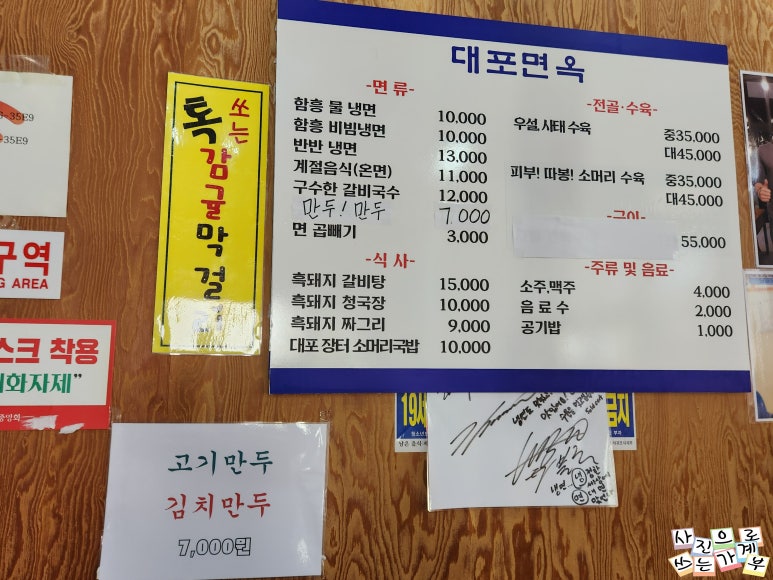 35E9
-35E9
구역
G AREA
스크 착용
화자제"
톡
쏘는
감귤막걸리
대포면옥
-면 류-
함흥 물 냉면 10.000
함흥 비빔냉면 10.000
반반 냉면 13.000
계절음식(온면) 11.000
구수한 갈비국수 12.000
만두! 만두 7.000
면 곱빼기 3.000
-식 사-
흑돼지 갈비탕 15.000
흑돼지 청국장 10.000
흑돼지 짜그리 9.000
대포 장터 소머리국밥 10.000
-전골·수육-
우설,사태 수육 중35.000
대45.000
피부! 따봉! 소머리 수육 중35.000
대45.000
55,000
-주류 및 음료-
소주,맥주 4.000
음 료 수 2.000
공기밥 1.000
고기만두
김치만두
7,000원
19세
금지
냉면
사진으로
쓰는가계부